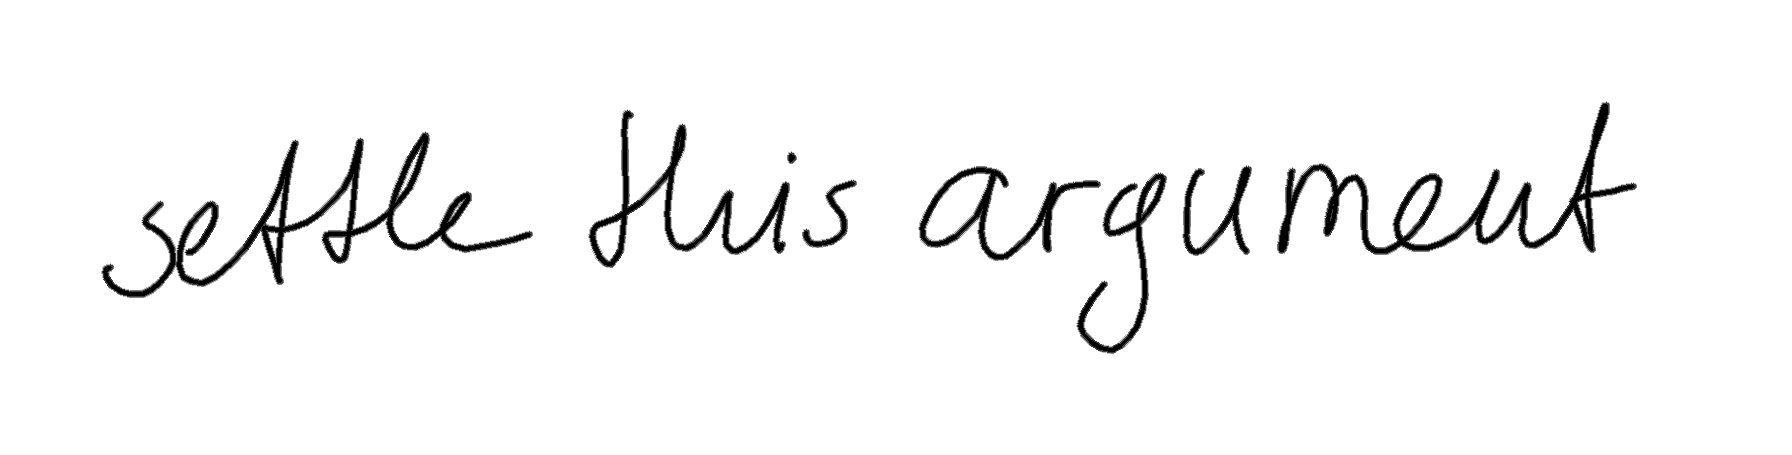 settle this argument